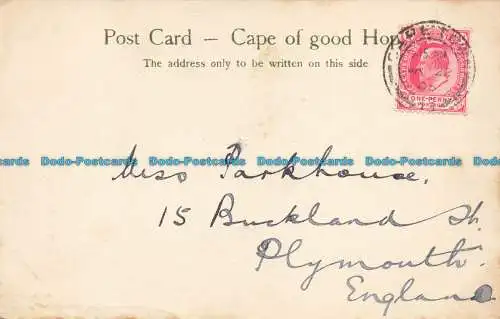 Post Card – Cape of good Hop
The address only to be written on this side
CAPE TOWN
ONE PENNY
Dodo-Postcards Dodo-Postcards Dodo-Postcards Dodo-Postcards
Miss Parkhouse,
15 Buckland St.
Dodo-Postcards Dodo-Postcards Dodo-Postcards Dodo-Postcards
Plymouth.
England